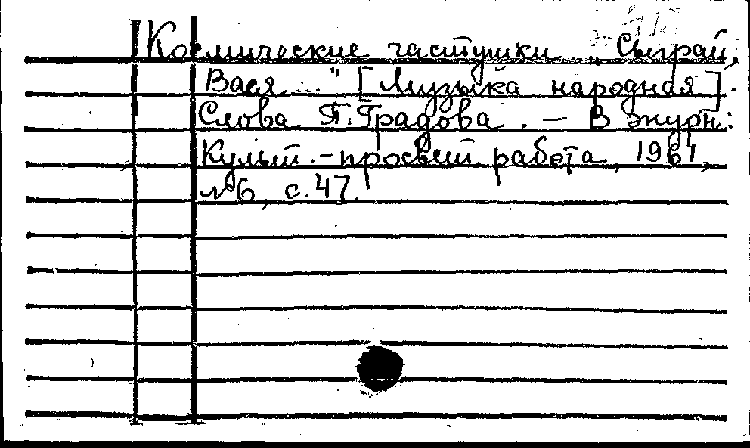 Космические частушки „Сыграй,
Вася..." [Музыка народная].
Слова П. Градова. - В журн:
Культ.-просвет работа, 1961,
№6, с.47.